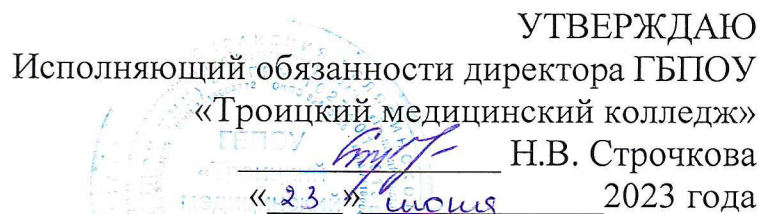 УТВЕРЖДАЮ
Исполняющий обязанности директора ГБПОУ
«Троицкий медицинский колледж»
Н.В. Строчкова
«23» июня 2023 года